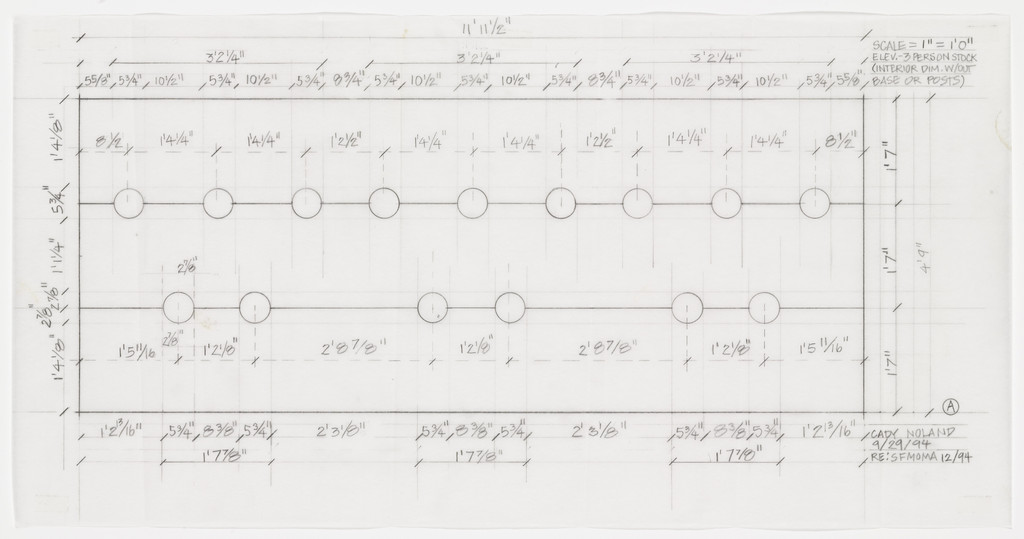 11'11½"
3'2¼" 3'2¼" 3'2¼"
SCALE = 1" = 1'0"
ELEV-3 PERSON STOCK
(INTERIOR DIM. W/OUT
BASE OR POSTS)
5⅝" 5¾" 10½" 5¾" 10½" 5¾" 8¾" 5¾" 10½" 5¾" 10½" 5¾" 8¾" 5¾" 10½" 5¾" 10½" 5¾" 5⅝"
8½" 1'4¼" 1'4¼" 1'2½" 1'4¼" 1'4¼" 1'2½" 1'4¼" 1'4¼" 8½"
1'4⅛"
5¾"
1'1¼"
2⅞"
2⅞"
1'4⅛"
1'7"
1'7"
1'7"
4'9"
2⅞"
2⅞"
1'5 11/16 1'2⅛" 2'8⅞" 1'2⅛" 2'8⅞" 1'2⅛" 1'5 11/16"
1'2 13/16" 5¾" 8⅜" 5¾" 2'3⅛" 5¾" 8⅜" 5¾" 2'3⅛" 5¾" 8⅜" 5¾" 1'2 13/16"
1'7⅞" 1'7⅞" 1'7⅞"
A
CADY NOLAND
9/29/94
RE: SFMOMA 12/94